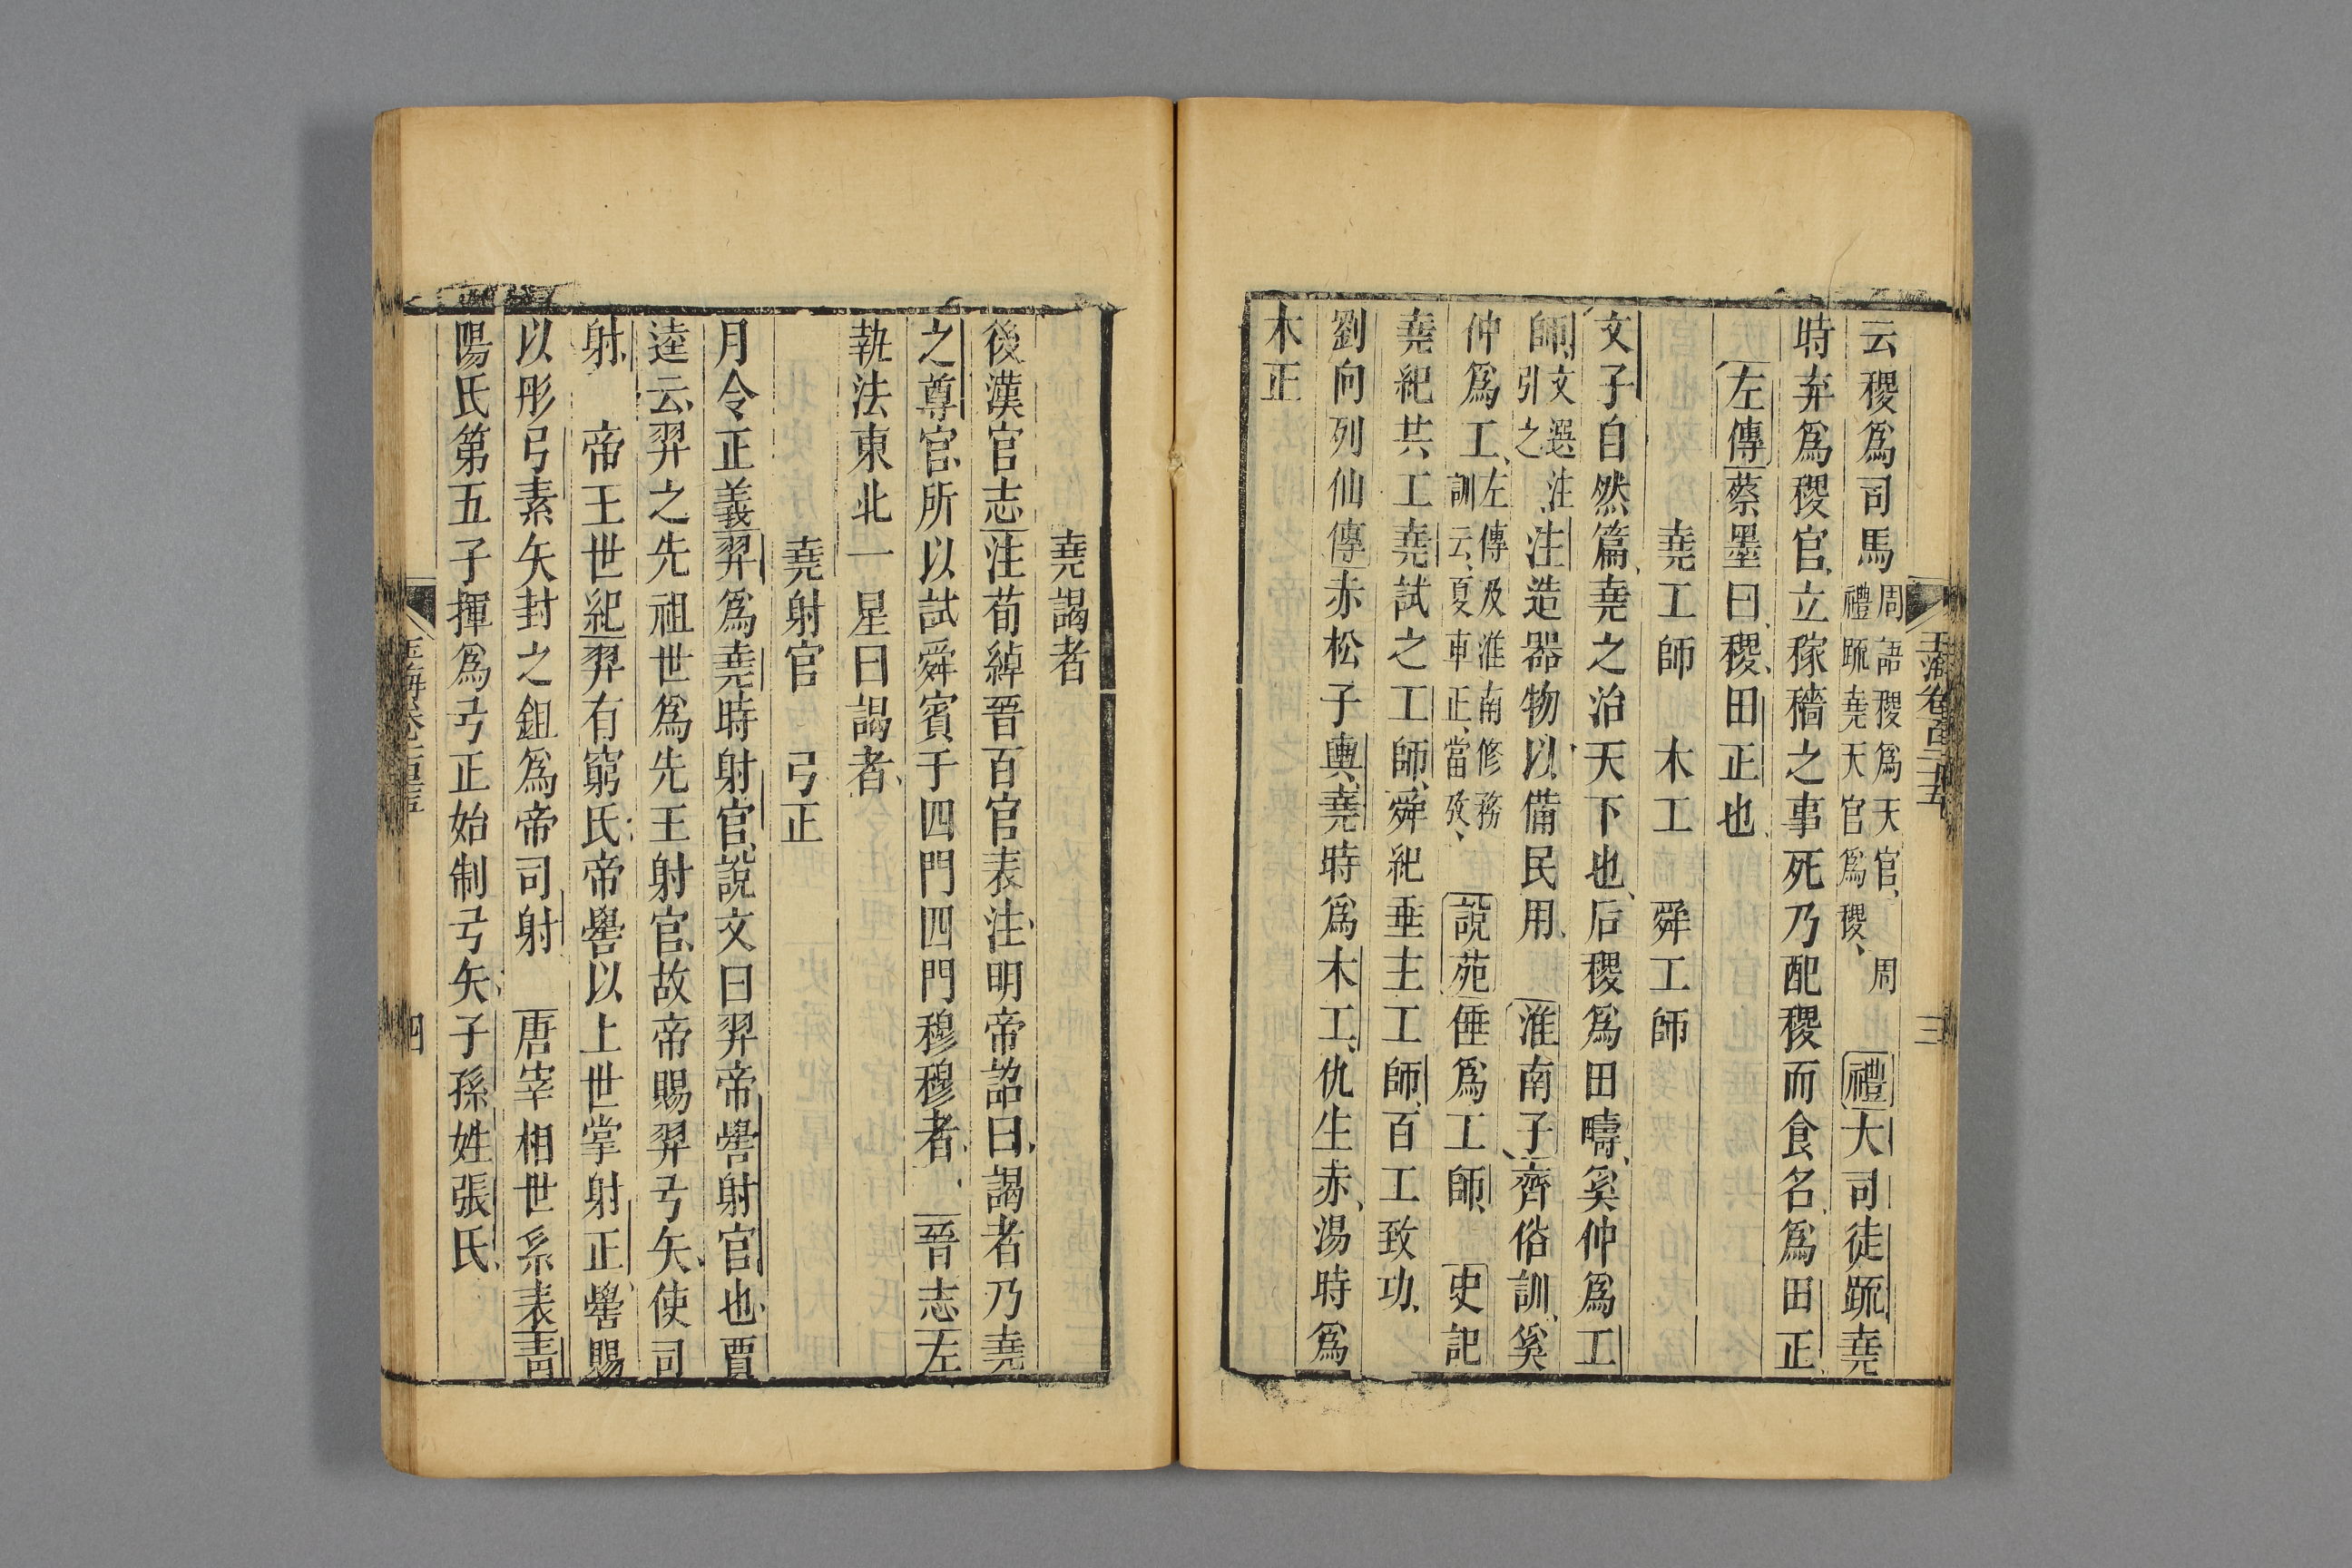 云稷爲司馬周語稷爲天官周禮䟽堯天官爲稷禮大司徒䟽堯
時弃爲稷官立稼穡之事死乃配稷而食名爲田正
左傳蔡墨曰稷田正也
堯工師　木工　舜工師
文子自然篇堯之治天下也后稷爲田疇奚仲爲工
師文選注引之注造器物以備民用淮南子齊俗訓奚
仲爲工左傳及淮南修務訓云夏車正當攷說苑倕爲工師史記
堯紀共工堯試之工師舜紀垂主工師百工致功
劉向列仙傳赤松子輿堯時爲木工仇生赤湯時爲
木正
玉海卷百二十五
三
堯謁者
後漢官志注荀綽晉百官表注明帝詔曰謁者乃堯
之尊官所以試舜賓于四門四門穆穆者晉志左
執法東北一星曰謁者
堯射官　弓正
月令正義羿爲堯時射官說文曰羿帝嚳射官也賈
逵云羿之先祖世爲先王射官故帝賜羿弓矢使司
射帝王世紀羿有窮氏帝嚳以上世掌射正嚳賜
以彤弓素矢封之鉏爲帝司射唐宰相世系表青
陽氏第五子揮爲弓正始制弓矢子孫姓張氏
四